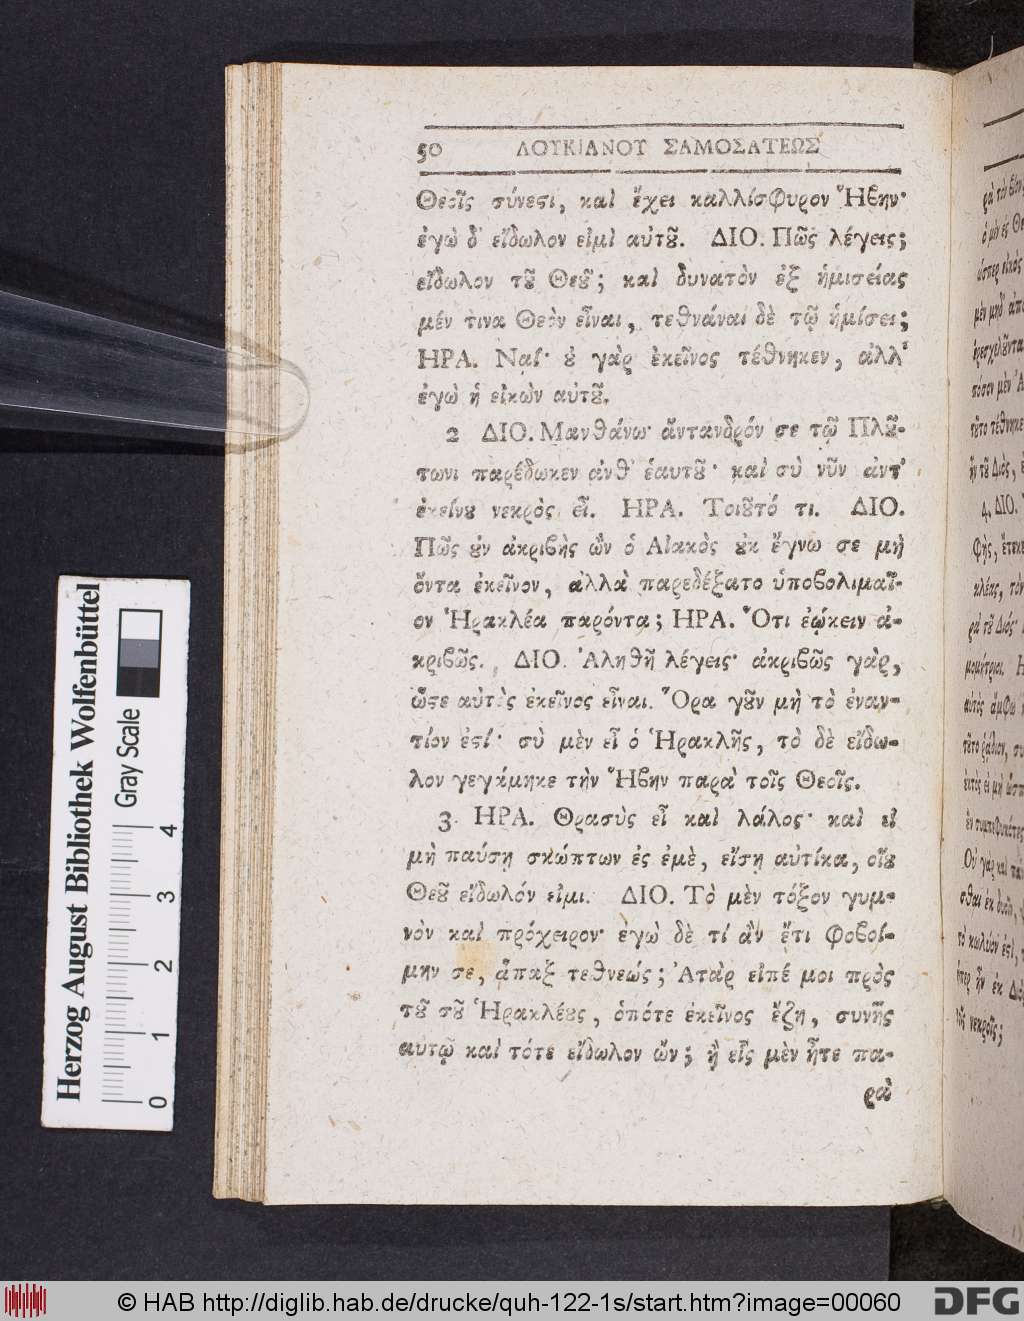 50 ΛΟΥΚΙΑΝΟΥ ΣΑΜΟΣΑΤΕΩΣ
Θεοῖς σύνεϛι, καὶ ἔχει καλλίσφυρον Ἥβην·
ἐγὼ δ' εἴδωλον εἰμὶ αὐτȣ͂. ΔΙΟ. Πῶς λέγεις;
εἴδωλον τȣ͂ Θεȣ͂; καὶ δυνατὸν ἐξ ἡμισείας
μέν τινα Θεὸν εἶναι, τεθνάναι δὲ τῷ ἡμίσει;
ΗΡΑ. Ναί· ȣ̓ γὰρ ἐκεῖνος τέθνηκεν, ἀλλ'
ἐγὼ ἡ εἰκὼν αὐτȣ͂.
2 ΔΙΟ. Μανθάνω· ἄντανδρόν σε τῷ Πλȣ́-
τωνι παρέδωκεν ἀνθ' ἑαυτȣ͂· καὶ σὺ νῦν ἀντ'
ἐκείνȣ νεκρὸς εἶ. ΗΡΑ. Τοιȣ͂τό τι. ΔΙΟ.
Πῶς ȣ̓ν ἀκριβὴς ὢν ὁ Αἰακὸς ȣ̓κ ἔγνω σε μὴ
ὄντα ἐκεῖνον, ἀλλὰ παρεδέξατο ὑποβολιμαῖ-
ον Ἡρακλέα παρόντα; ΗΡΑ. Ὅτι ἐῴκειν ἀ-
κριβῶς. ΔΙΟ. Ἀληθῆ λέγεις· ἀκριβῶς γὰρ,
ὥϛε αὐτὸς ἐκεῖνος εἶναι. Ὅρα γȣ͂ν μὴ τὸ ἐναν-
τίον ἐϛί· σὺ μὲν εἶ ὁ Ἡρακλῆς, τὸ δὲ εἴδω-
λον γεγάμηκε τὴν Ἥβην παρὰ τοῖς Θεοῖς.
3. ΗΡΑ. Θρασὺς εἶ καὶ λάλος· καὶ εἰ
μὴ παύσῃ σκώπτων ἐς ἐμὲ, εἴσῃ αὐτίκα, οἵȣ
Θεȣ͂ εἴδωλόν εἰμι. ΔΙΟ. Τὸ μὲν τόξον γυμ-
νὸν καὶ πρόχειρον· ἐγὼ δὲ τί ἂν ἔτι φοβοί-
μην σε, ἅπαξ τεθνεώς; Ἀτὰρ εἰπέ μοι πρὸς
τȣ͂ σȣ͂ Ἡρακλέȣς, ὁπότε ἐκεῖνος ἔζη, συνῆς
αυτῷ καὶ τότε εἴδωλον ὤν; ἢ εἷς μὲν ἦτε πα-
ρὰ
Herzog August Bibliothek Wolfenbüttel
Gray Scale
0 1 2 3 4
© HAB http://diglib.hab.de/drucke/quh-122-1s/start.htm?image=00060
DFG